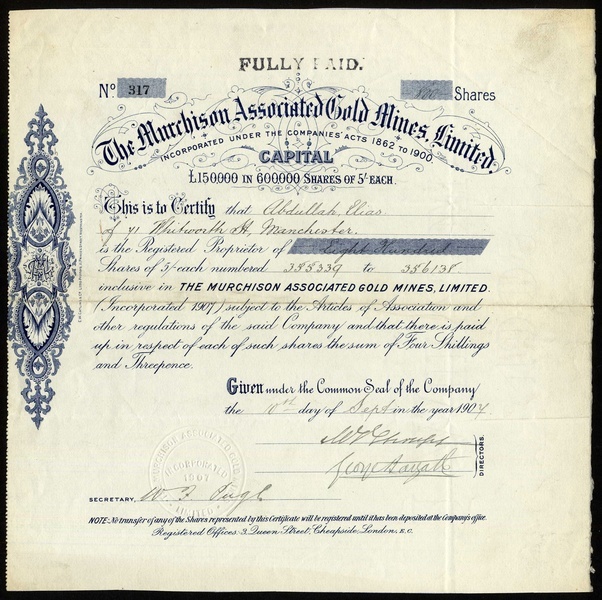 FULLY PAID.
No. 317
800 Shares
The Murchison Associated Gold Mines, Limited.
INCORPORATED UNDER THE COMPANIES' ACTS 1862 TO 1900.
CAPITAL
£150,000 IN 600,000 SHARES OF 5/- EACH.
This is to Certify that Abdullah Elias
of 41 Whitworth St, Manchester.
is the Registered Proprietor of Eight Hundred
Shares of 5/- each numbered 355339 to 356138
inclusive in THE MURCHISON ASSOCIATED GOLD MINES, LIMITED.
(Incorporated 1907) subject to the Articles of Association and
other regulations of the said Company and that there is paid
up in respect of each of such shares the sum of Four Shillings
and Threepence.
Given under the Common Seal of the Company
the 10th day of Sept in the year 1907
DIRECTORS.
MURCHISON ASSOCIATED GOLD
INCORPORATED
1907
LIMITED
SECRETARY, W. F. Pugh
NOTE: No transfer of any of the Shares represented by this Certificate will be registered until it has been deposited at the Company's office.
Registered Offices: 3, Queen Street, Cheapside, London, E.C.